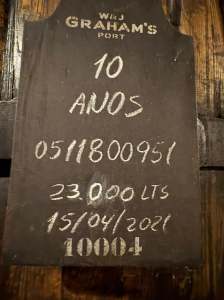 W&J
GRAHAM'S
PORT
10
ANOS
0511800951
23.000 LTS
15/04/2021
10004